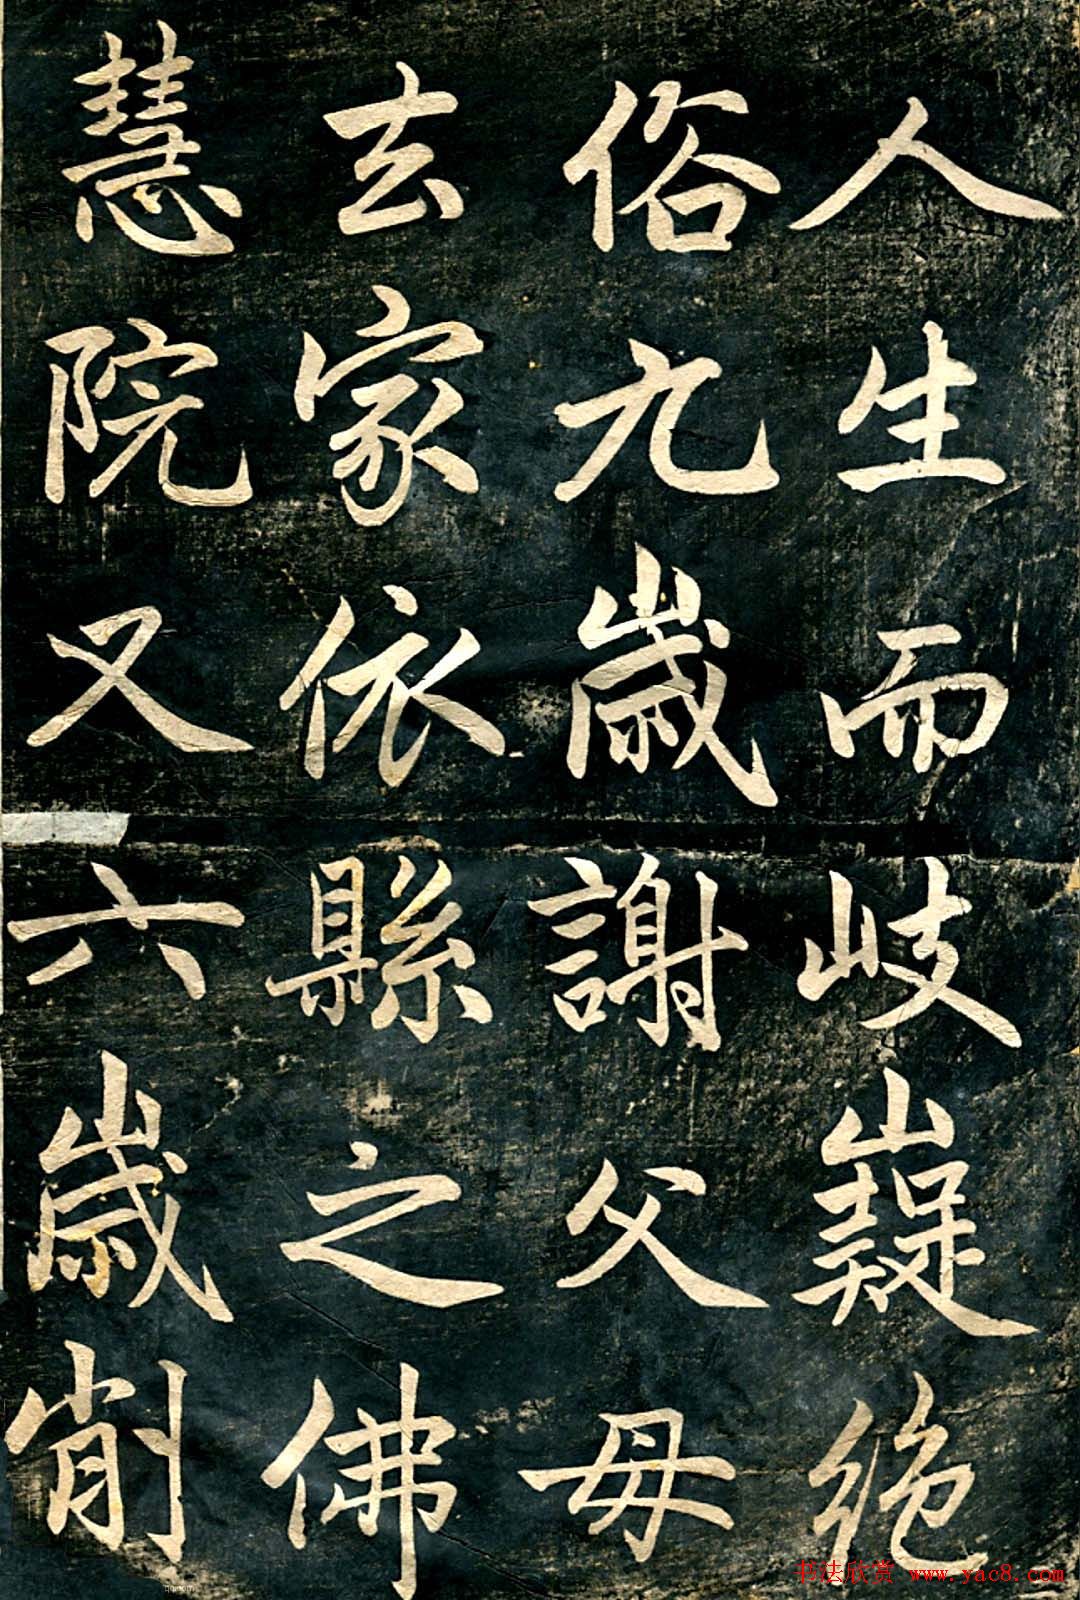 人生而岐嶷絶
俗九歲謝父母
去家依縣之佛
慧院又六歲削
书法欣赏 www.yac8.com